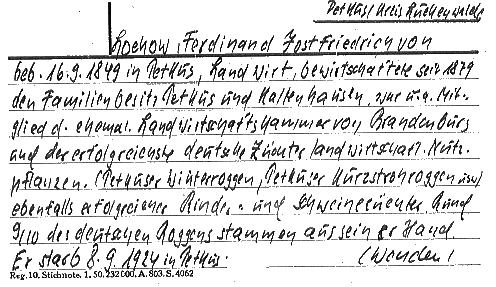 Petkus/Kreis Luckenwalde
Lochow, Ferdinand Jost Friedrich von
geb. 16.9.1849 in Petkus, Landwirt, bewirtschaftete seit 1879
den Familienbesitz Petkus und Kaltenhausen, war u.a. Mit-
glied d. ehemal. Landwirtschaftskammer von Brandenburg
und der erfolgreichste deutsche Züchter landwirtschaftl. Nutz-
pflanzen. (Petkuser Winterroggen, Petkuser Kurzstrohroggen usw)
ebenfalls erfolgreicher Rinder- und Schweinezüchter Rund
9/10 des deutschen Roggens stammen aus seiner Hand
Er starb 8.9.1924 in Petkus. (Wenden)
Reg. 10. Stichnote. 1. 50. 232 000. A. 803. S. 4062